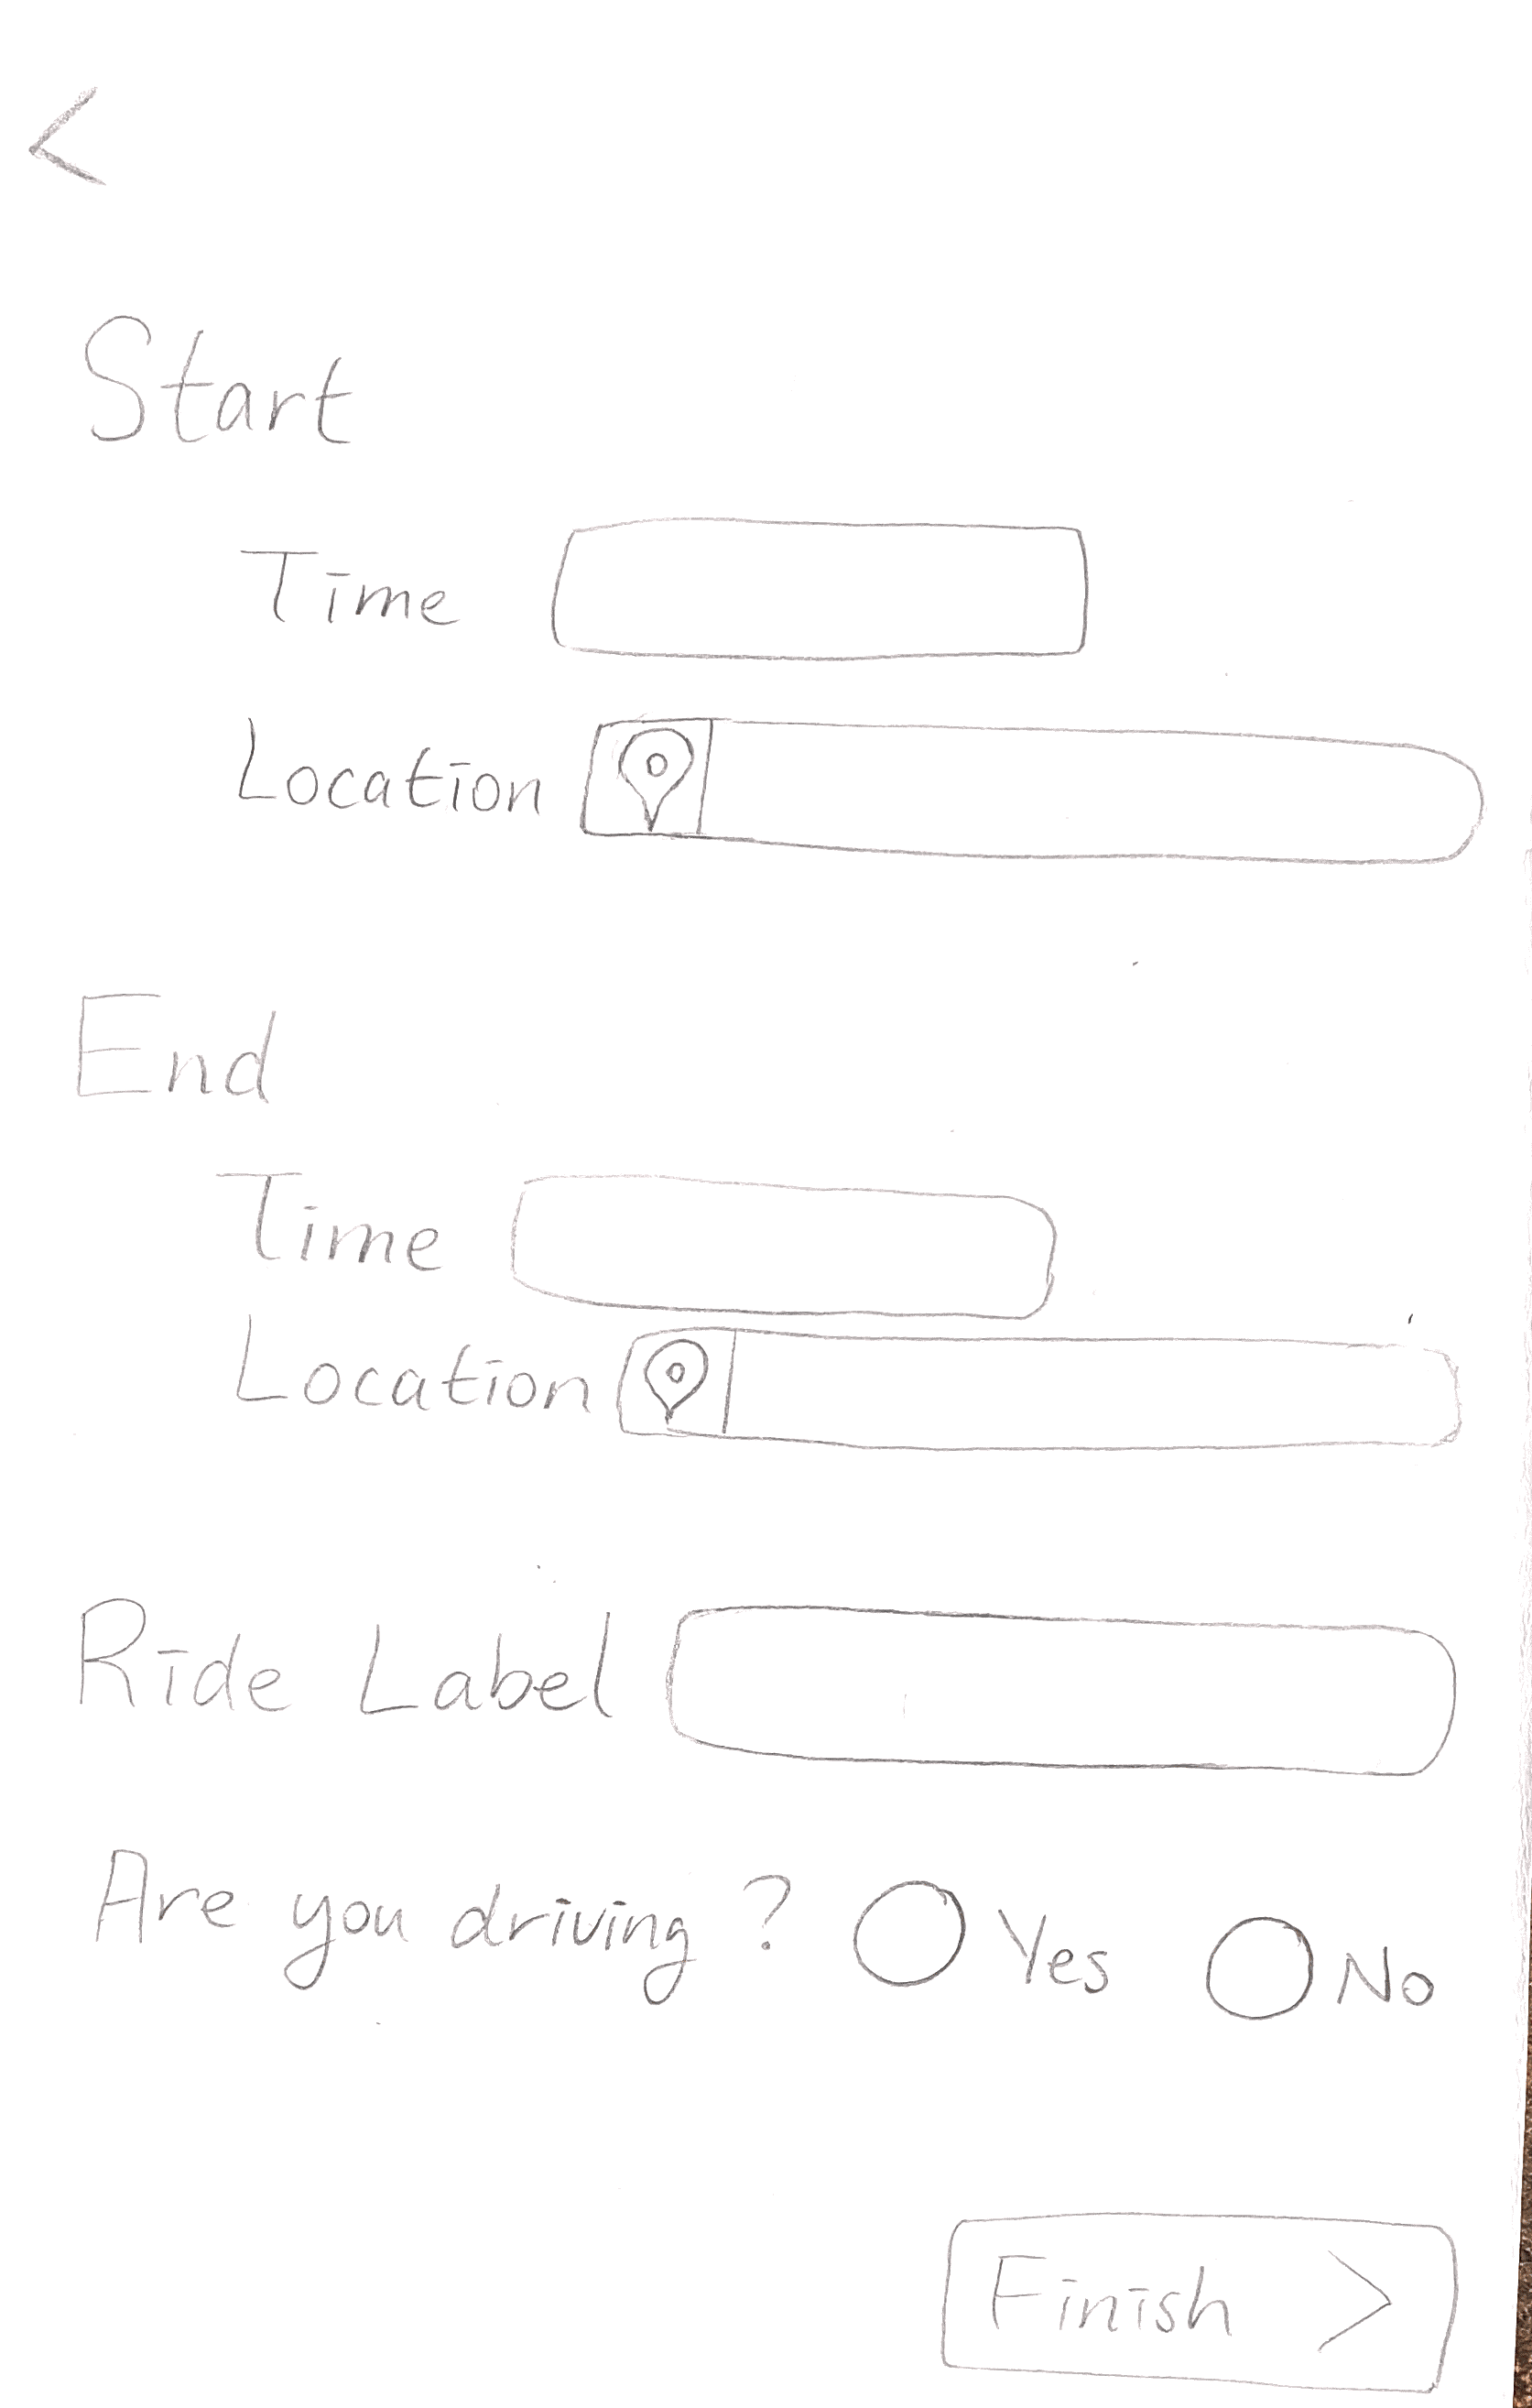 <
Start
Time
Location
End
Time
Location
Ride Label
Are you driving? Yes No
Finish >